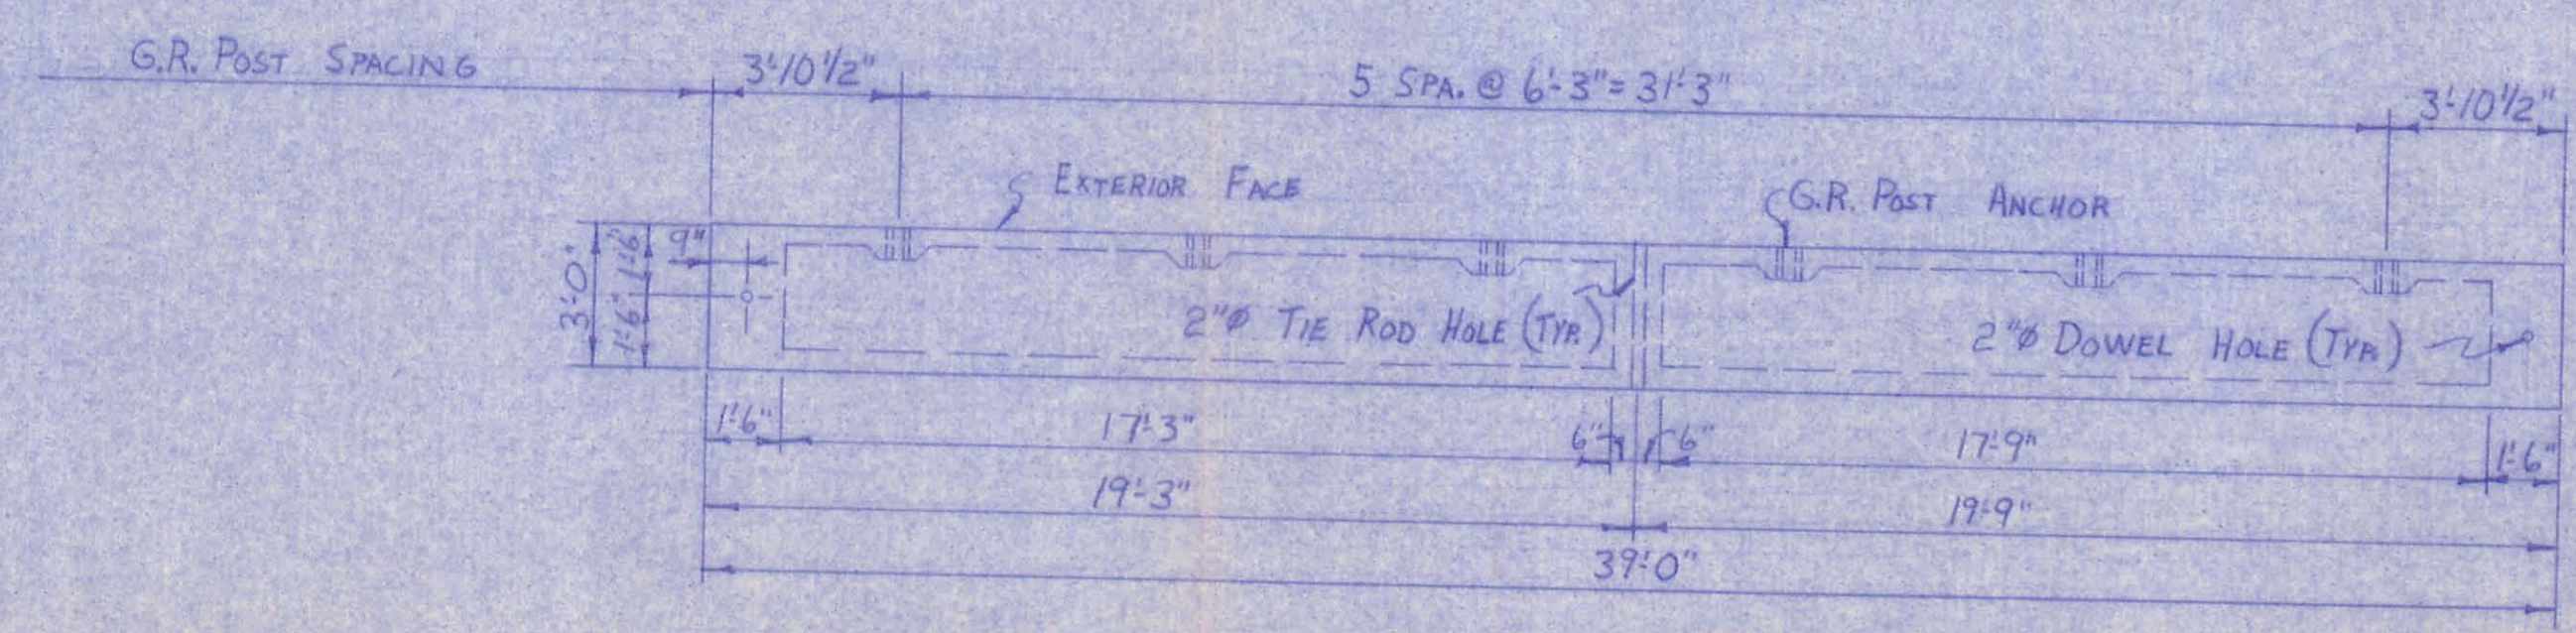 G.R. POST SPACING
3'-10 1/2"
5 SPA. @ 6'-3" = 31'-3"
3'-10 1/2"
EXTERIOR FACE
G.R. POST ANCHOR
3'-0"
1'-6"
1'-6"
9"
2"ø TIE ROD HOLE (TYP.)
2"ø DOWEL HOLE (TYP.)
1'-6"
17'-3"
6"
6"
17'-9"
1'-6"
19'-3"
19'-9"
39'-0"